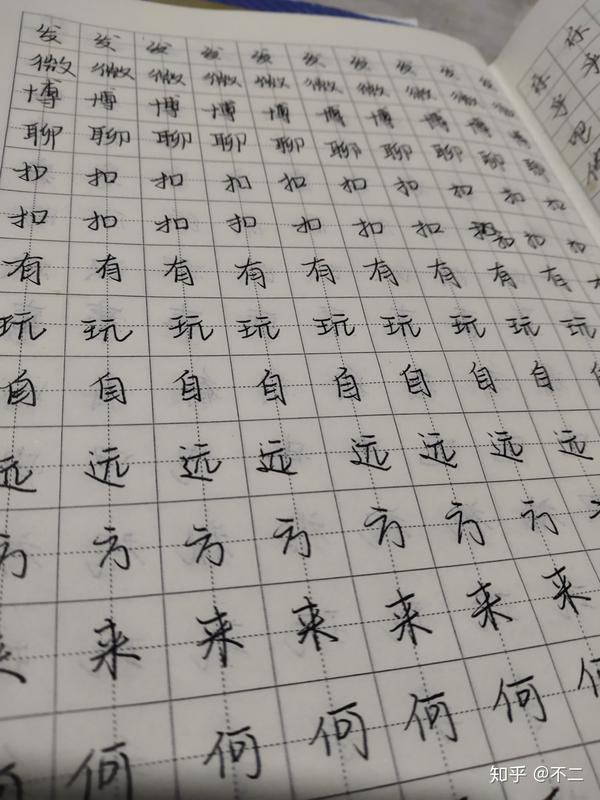 发 发 发 发 发 发 发 发 发
微 微 微 微 微 微 微 微 微
博 博 博 博 博 博 博 博 博 博
聊 聊 聊 聊 聊 聊 聊 聊 聊 聊
扣 扣 扣 扣 扣 扣 扣 扣 扣 扣
扣 扣 扣 扣 扣 扣 扣 扣 扣 扣
有 有 有 有 有 有 有 有 有
玩 玩 玩 玩 玩 玩 玩 玩 玩
自 自 自 自 自 自 自 自
远 远 远 远 远 远 远 远
方 方 方 方 方 方 方
来 来 来 来 来 来
何 何 何 何 何
你 乎 吧
知乎 @不二